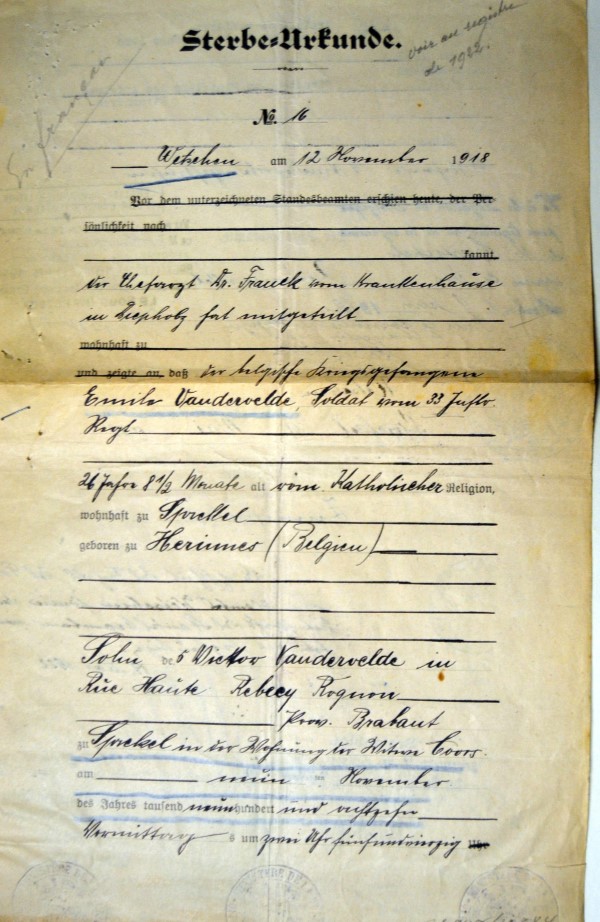 Sterbe=Urkunde.
voir au registre
de 1922.
En français
No. 16
Wetschen am 12 November 1918
Vor dem unterzeichneten Standesbeamten erschien heute, der Per-
sönlichkeit nach
kannt
der Chefarzt Dr. Franck vom Krankenhause
in Diepholz hat mitgeteilt
wohnhaft zu
und zeigte an, daß der belgische Kriegsgefangene
Emile Vandervelde, Soldat vom 33 Inftr.
Regt.
26 Jahre 8 1/2 Monate alt vom Katholischer Religion,
wohnhaft zu Spreckel
geboren zu Herinnes (Belgien)
Sohn des Victor Vandervelde in
Rue Haute Rebecq Rognon
Prov. Brabant
zu Spreckel in der Wohnung der Witwe Coors
am neun ten November
des Jahres tausend neunhundert und achtzehn
Vormittags um zwei Uhr fünfundvierzig Uhr